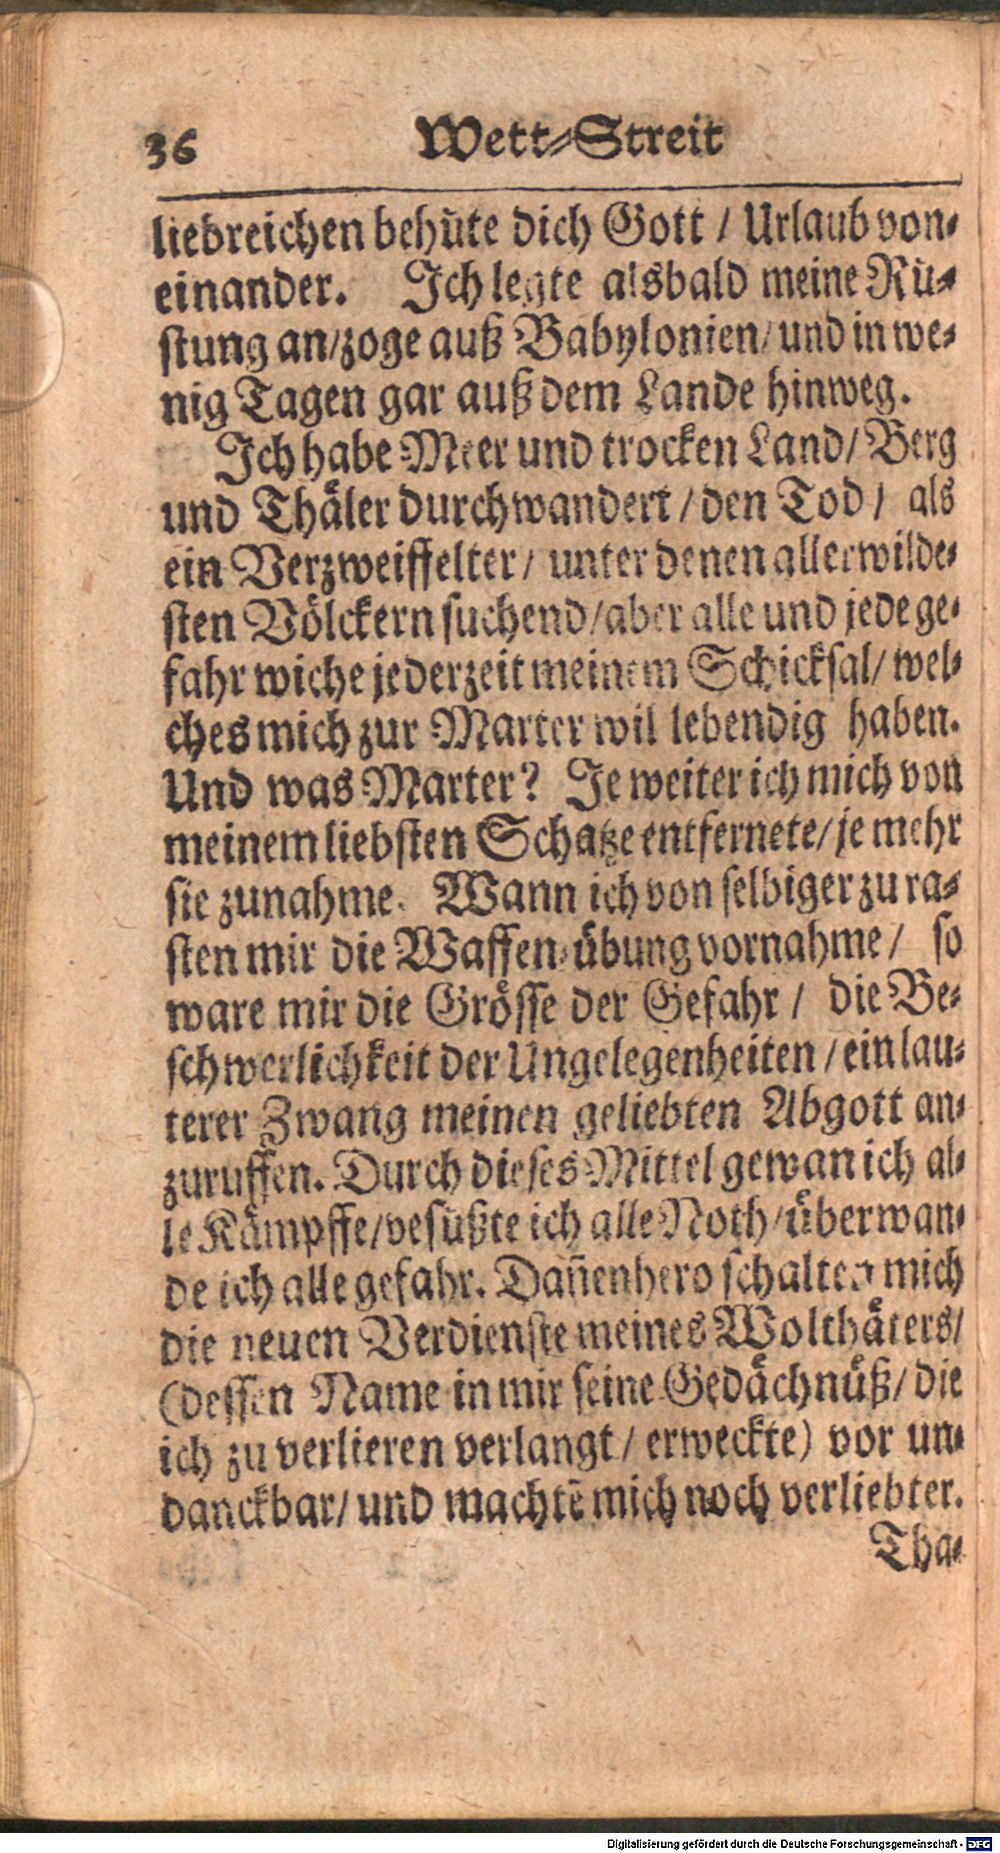 36 Wett-Streit
liebreichen behüte dich Gott / Urlaub von-
einander. Ich legte alsbald meine Rü-
stung an/zoge auß Babylonien/und in we-
nig Tagen gar auß dem Lande hinweg.
Ich habe Meer und trocken Land/Berg
und Thäler durchwandert/den Tod/ als
ein Verzweiffelter/ unter denen allerwilde-
sten Völckern suchend/aber alle und jede ge-
fahr wiche jederzeit meinem Schicksal/ wel-
ches mich zur Marter wil lebendig haben.
Und was Marter? Je weiter ich mich von
meinem liebsten Schatze entfernete/je mehr
sie zunahme. Wann ich von selbiger zu ra-
sten mir die Waffen-übung vornahme/ so
ware mir die Grösse der Gefahr / die Be-
schwerlichkeit der Ungelegenheiten/ein lau-
terer Zwang meinen geliebten Abgott an-
zuruffen. Durch dieses Mittel gewan ich al-
le Kämpffe/vesüßte ich alle Noth/überwan-
de ich alle gefahr. Dañenhero schalten mich
die neuen Verdienste meines Wolthäters/
(dessen Name in mir seine Gedächnüß/die
ich zu verlieren verlangt/ erweckte) vor un-
danckbar/ und machtē mich noch verliebter.
Tha-
Digitalisierung gefördert durch die Deutsche Forschungsgemeinschaft - DFG